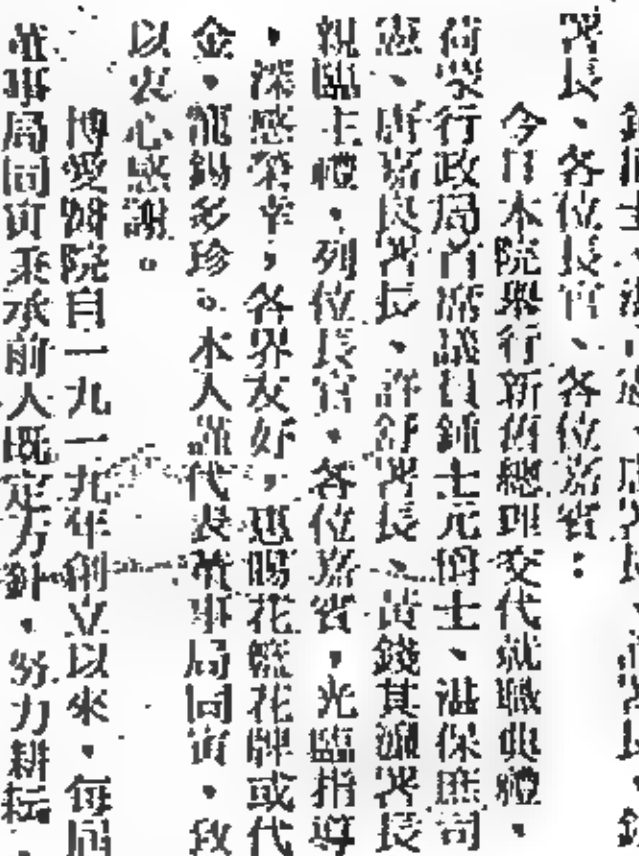 士、
署長、各位長官、各位嘉賓：
今日本院舉行新舊總理交代就職典禮，
荷蒙行政局首席議員鍾士元爵士、湛保庶司
憲、唐嘉良署長、許舒署長、黃錢其濂署長
親臨主禮，列位長官，各位嘉賓，光臨指導
，深感榮幸；各界友好，惠賜花籃花牌或代
金，寵錫多珍。本人謹代表董事局同寅，致
以衷心感謝。
博愛醫院自一九一九年創立以來，每屆
董事局同寅秉承前人既定方針，努力耕耘，